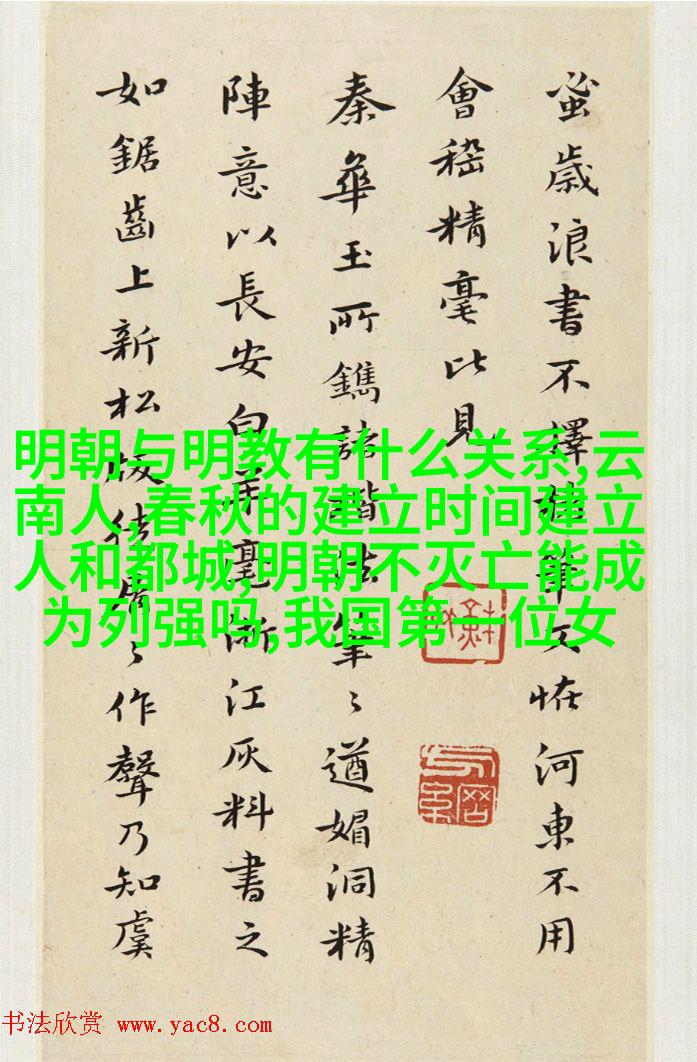 蚤歲浪書不擇筆又恠河東不用
會嵇精毫比見
秦華玉所鐫諸楷法筆〻遒媚洞精
陣意以長安白羊毫淛江灰料書之
如鋸齒上新松板〻作聲乃知虞
明朝与明教有什么关系,云
南人,春秋的建立时间建立
人和都城,明朝不灭亡能成
为列强吗,我国第一位女
书法欣赏 www.yac8.com